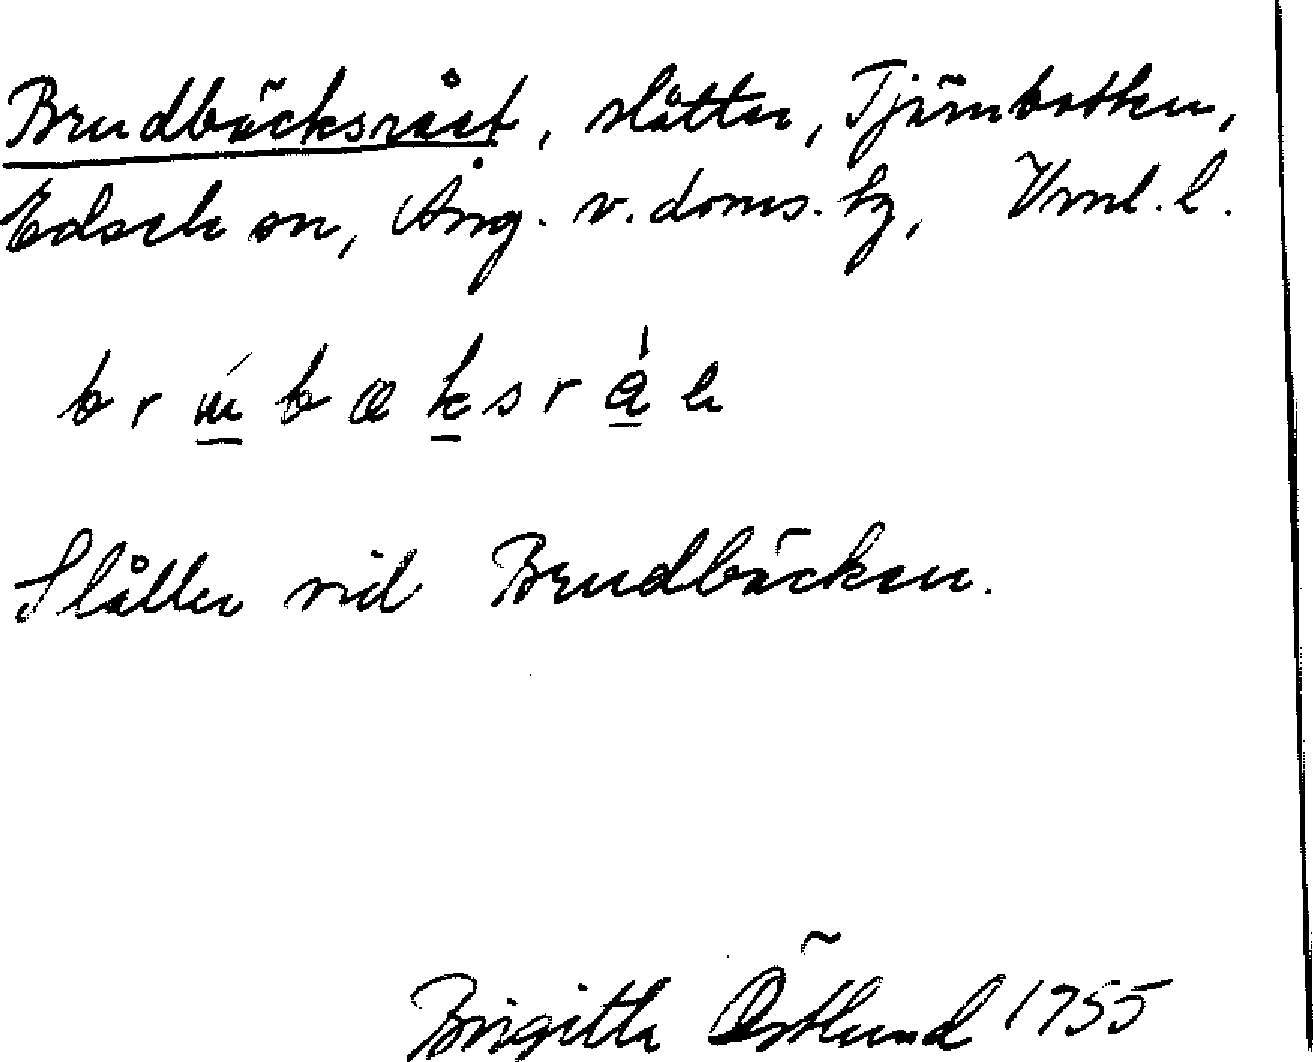 Brudbäcksrået, slåtter, Tjärnbotten,
Edsele sn, Ång. v. doms. hg, Vnl. l.
br b æ k s r
Slåtter vid Brudbäcken.
Birgitta Östlund 1955